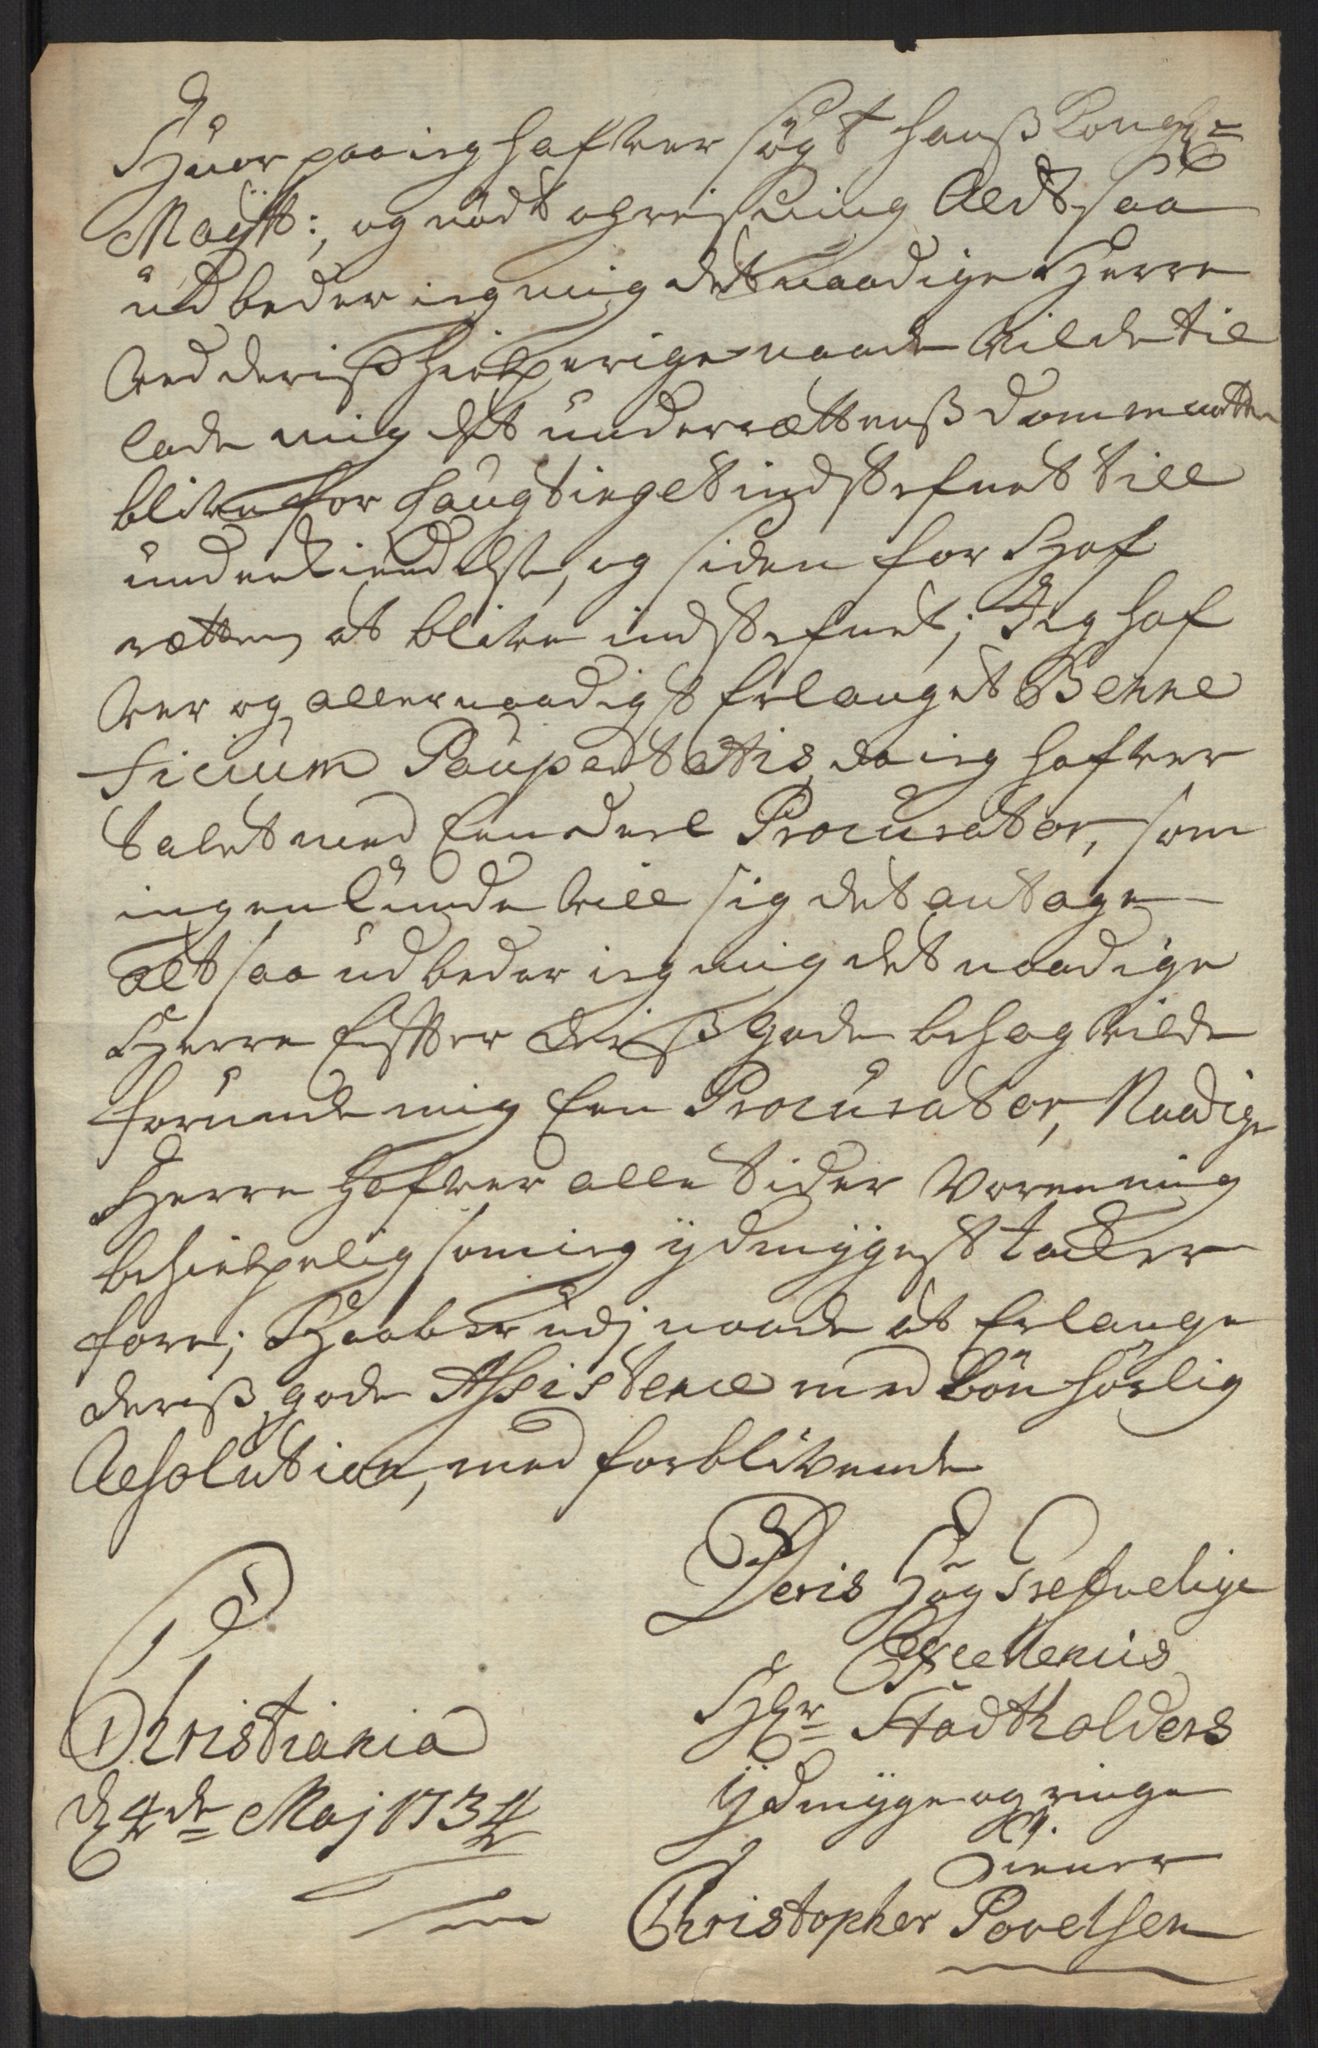 Huor paa ieg hafver søgt hanß Kongl:
Maytt:, og nødt opreisning Altsaa
udbeder ieg mig det naadige Herre
Ved deriß hielperige naade Vilde til
lade mig det underrættenß Domme motte
blive for Laugtinget indstefnet till
underkiendelse, og siden for Hof
rætten at blive indstefnet; Jeg haf
ver og allernaadigst Erlanget Benne
ficium Paupertatis, da ieg hafver
talet med Een deel Procurator, som
ingenlunde vill sig det antage –
altsaa udbeder ieg mig det naadige
Herre Efter deriß gode behag vilde
forunde mig Een Procurator, Naadige
Herre hafver alle tider Voren mig
behielpelig som ieg ydmygest tacker
fore; Haaber udj naade at Erlange
deriß gode Assistence med bønhørlig
Resolution, med forblivende
Deris Høg Grefvelige
Excellencis
Hr Stadtholders
ydmyge og ringe
tiener
Christopher Povelsen
Christiania
d 4de Maj 1734